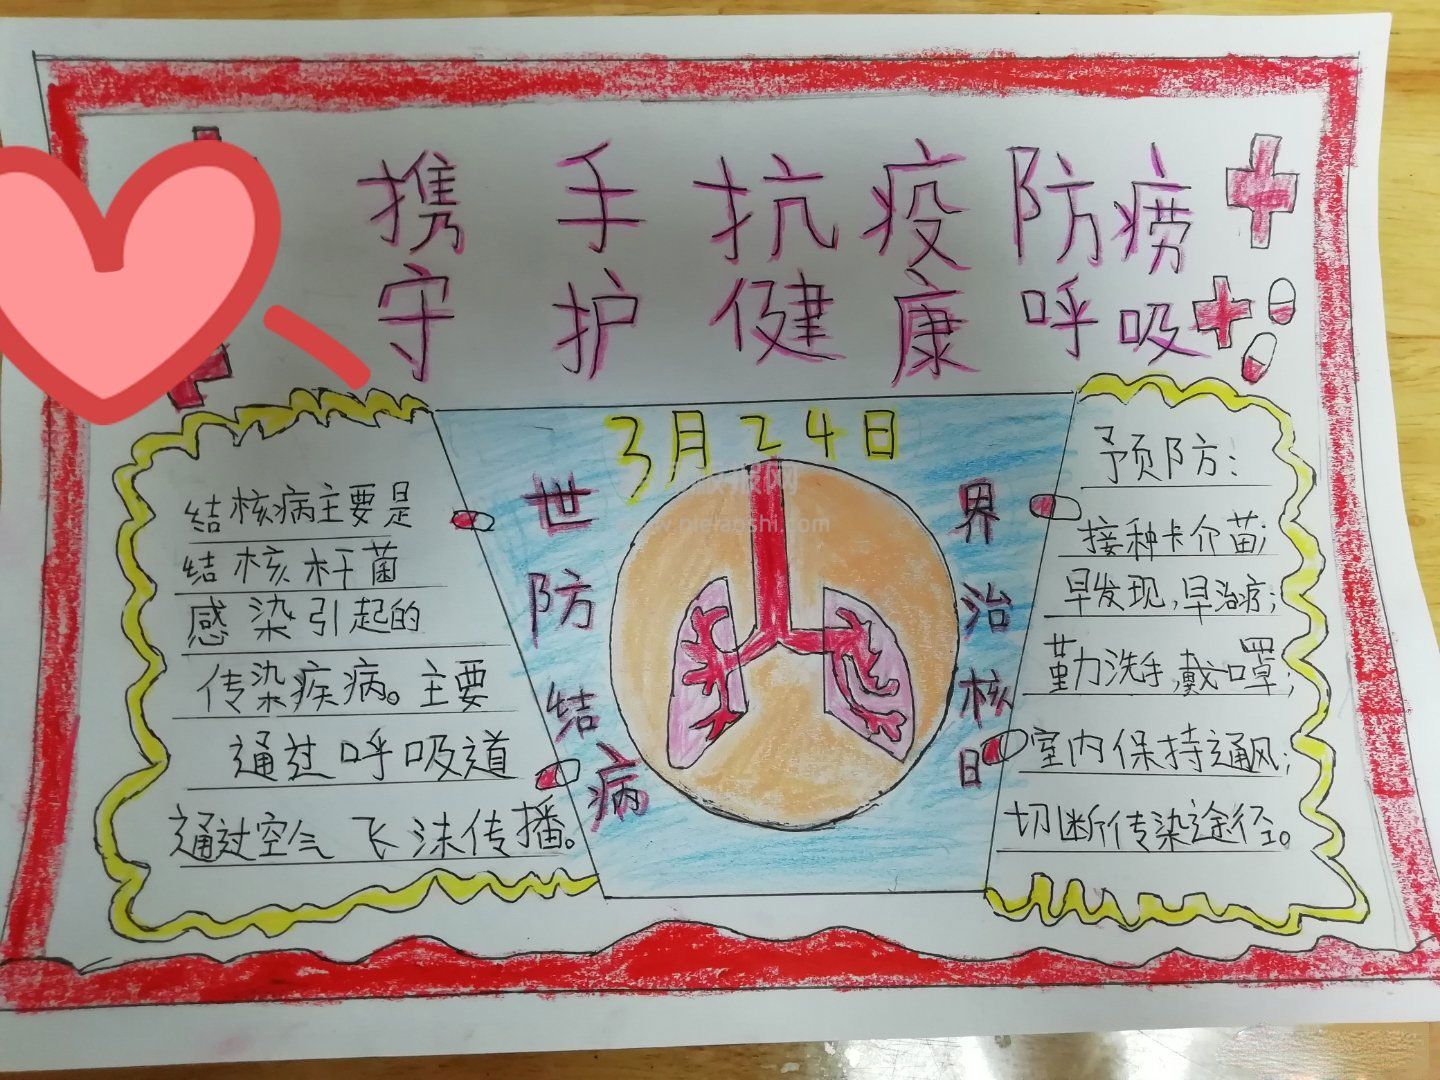 携手抗疫防痨
守护健康呼吸
3月24日
世界
防治
结核
病日
结核病主要是
结核杆菌
感染引起的
传染疾病。主要
通过呼吸道
通过空气飞沫传播。
予防:
接种卡介苗;
早发现,早治疗;
勤洗手,戴口罩;
室内保持通风;
切断传染途径。